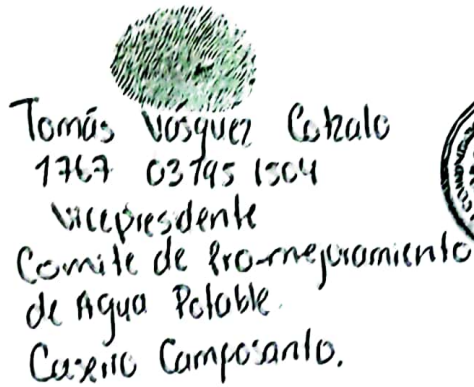 Tomás Vásquez Cotzalo
1767 03795 1504
Vicepresidente
Comite de Pro-mejoramiento
de Agua Potable.
Caserio Camposanto.